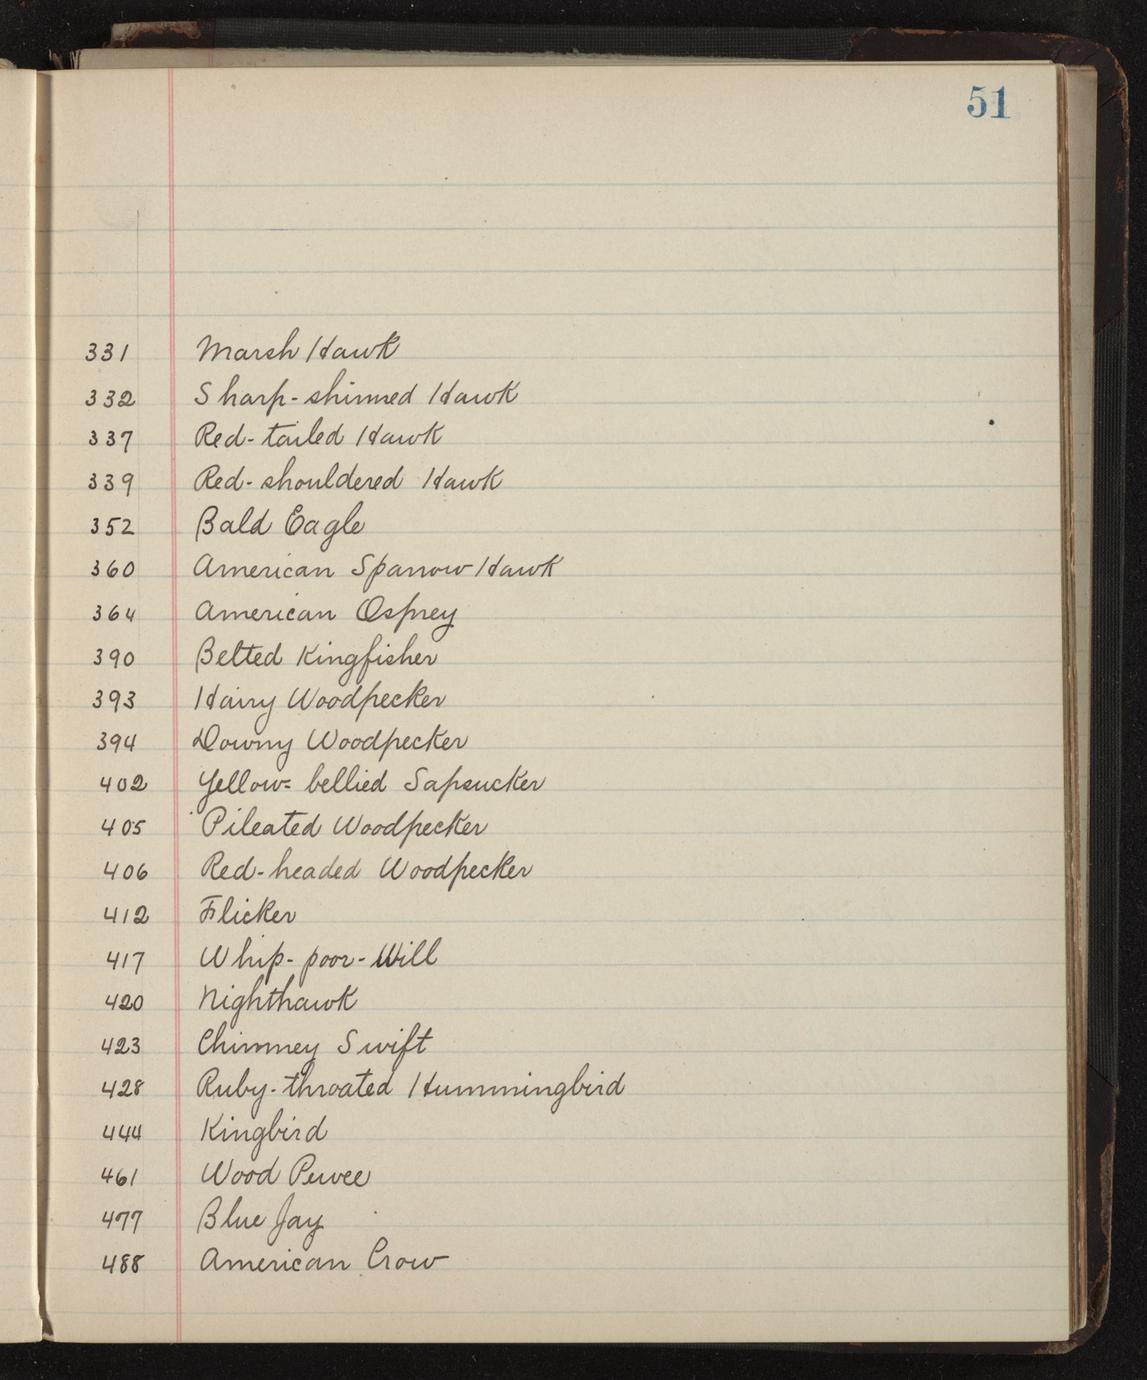 51
331 Marsh Hawk
332 Sharp-shinned Hawk
337 Red-tailed Hawk
339 Red-shouldered Hawk
352 Bald Eagle
360 American Sparrow Hawk
364 American Osprey
390 Belted Kingfisher
393 Hairy Woodpecker
394 Downy Woodpecker
402 Yellow-bellied Sapsucker
405 Pileated Woodpecker
406 Red-headed Woodpecker
412 Flicker
417 Whip-poor-Will
420 Nighthawk
423 Chimney Swift
428 Ruby-throated Hummingbird
444 Kingbird
461 Wood Pewee
477 Blue Jay
488 American Crow